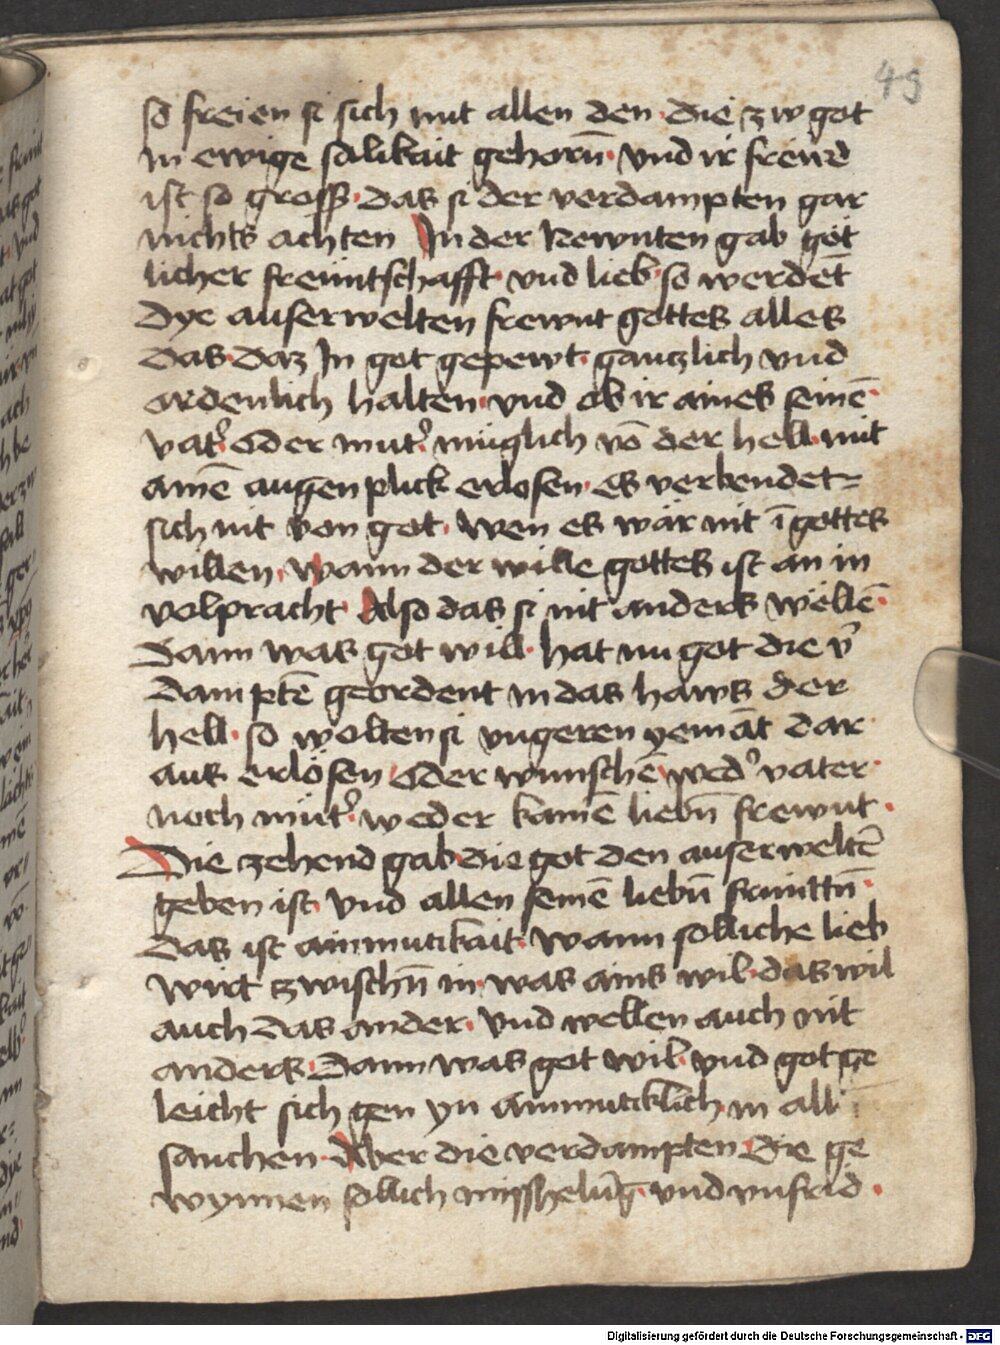 49
so freien si sich mit allen den die zw got
in ewige salikait gehorn̄ vnd ir freẅd
ist so gross das si der verdampten gar
nichts achten In der Newnten gab göt
licher freüntschafft vnd lieb so werdēt
Dye auserwelten frewnt gottes alles
das daz In got gepewt gantzlich vnd
ordenlich halten vnd ob ir aines seinē
vat᷑ oder mut᷑ müglich vō der hell mit
ainē augen plick erlosen es verbendet=
sich nit von got wen es wär nit ī gottes
willen Wann der wille gottes ist an in
volpracht Also das si nit anders wellē
Dann was got will hat nu got die v᷑
damptē geordent in das haws der
hell so wolten si vngeren yemāt dar
aus erlösen oder wunschē wed᷑ vater
noch müt᷑ weder kainē liebn̄ frewnt
Die zehend gab die got den auserweltē
geben ist vnd allen seinē liebn̄ frainttn̄
das ist ainmutikait wann solliche lieb
wirt zwischn̄ in was ains wil das wil
auch das ander vnd wellen auch nit
anders Dann was got wil vnd got ge
leicht sich gen yn ainmutiklich in all
sauchen Aber die verdampten die ge
wynnen sollich misshelūg vnd vnfrid
Digitalisierung gefördert durch die Deutsche Forschungsgemeinschaft - DFG